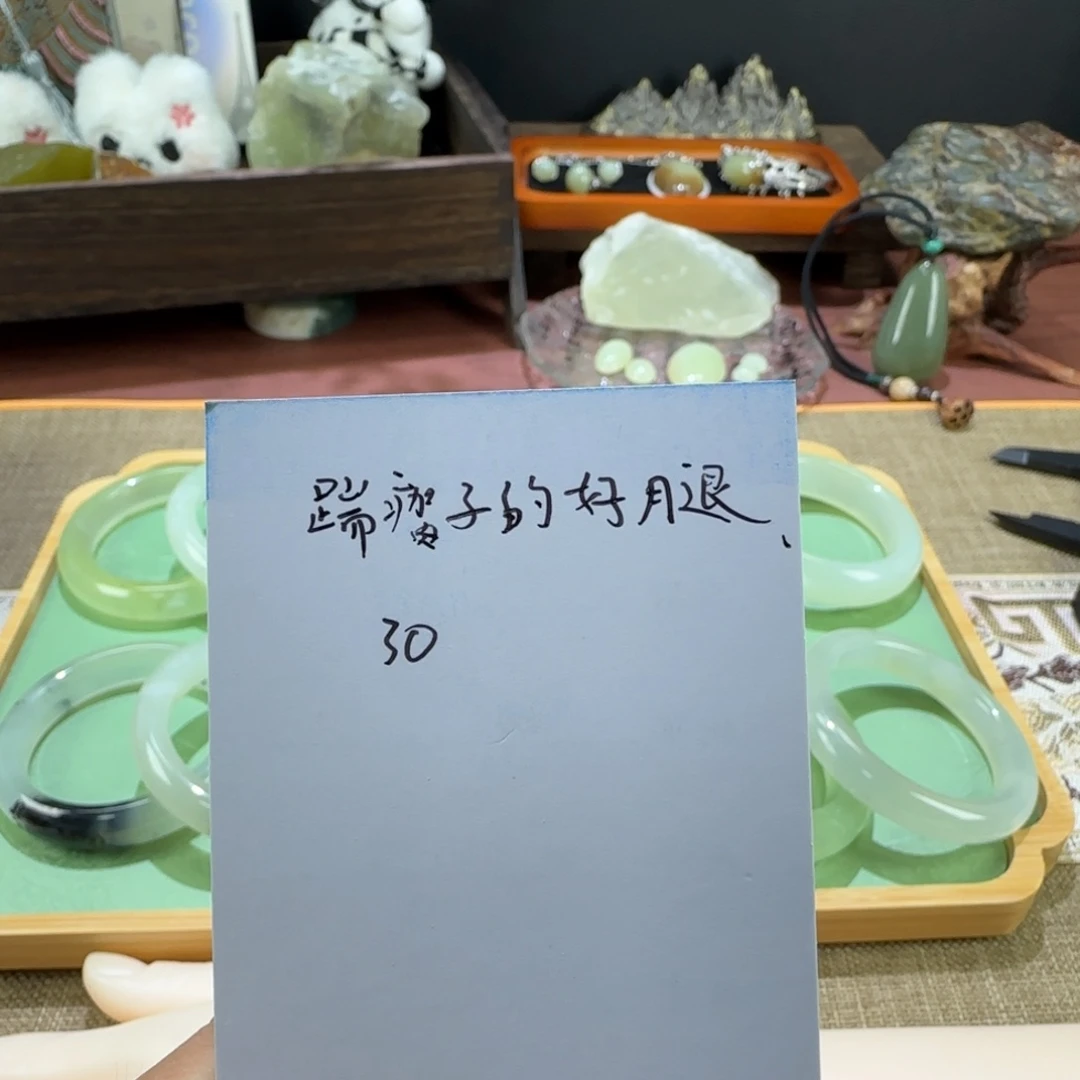 踹瘸子的好腿、
30